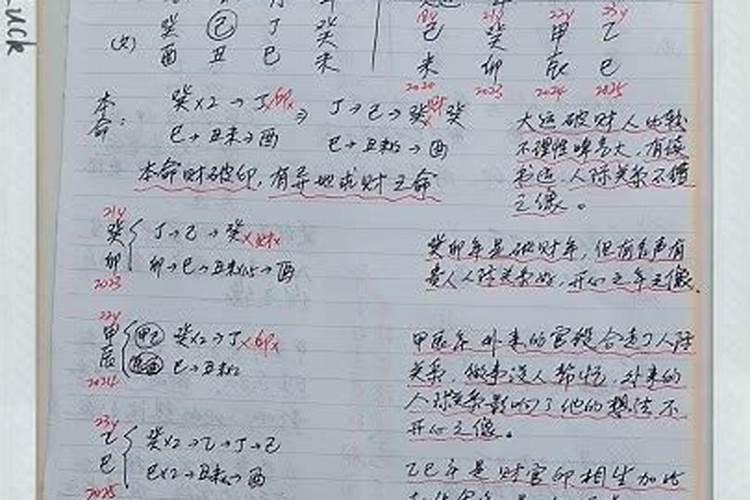 uck
癸 己 丁 癸
(女)
酉 丑 巳 未
18y 21y 22y 23y
己 癸 甲 乙
未 卯 辰 巳
2020 2023 2024 2025
本命:
癸x2→丁x印x ⇒ 丁→己→癸x财x 癸
巳→丑未→酉 巳→丑未x2→酉
本命财破印,有异地求财之命
大运破财人比较
不理性啤气大,有读
书运,人际关系不错
之像。
21y
癸卯
2023
丁→己→癸x财x
卯→巳→丑未x2→酉
癸卯年是破财年,但有名声有
贵人人际关系好,开心之年之像.
22y
甲辰
2024
甲己 癸x2→丁x印x
辰酉 巳→丑未x2
甲辰年外来的官杀合走了人际
关系,做事没人帮忙,外来的
人际关系影响了他的想法不
开心之像。
23y
乙巳
2025
癸x2→乙→丁→己
巳x2→丑未x2→酉
乙巳年是财官印相生加比